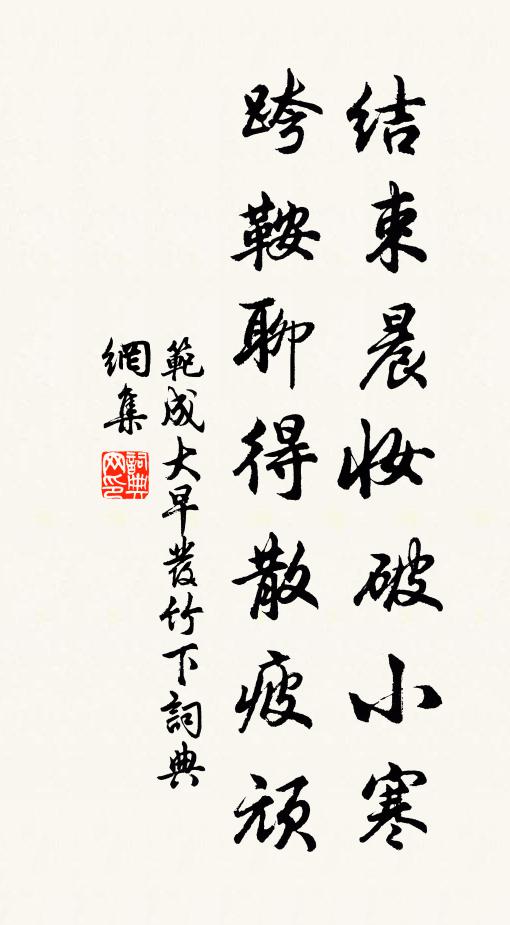 结束晨妆破小寒
跨鞍聊得散疲顽
範成大早發竹下詞典
網集
詞典
网印